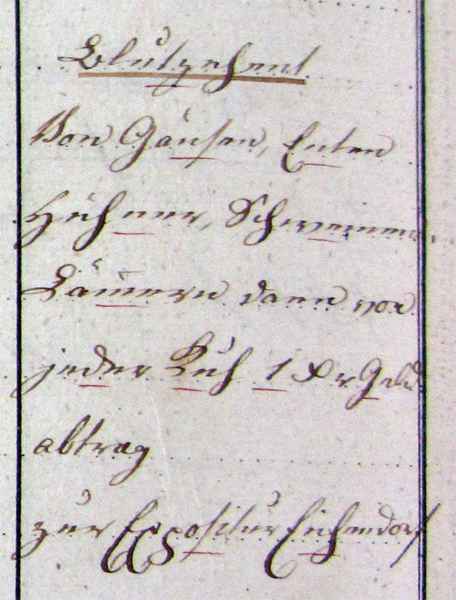 Blutzehent
Von Gänsen, Enten
Hühner, Schweinen,
Lämern dann von
jeder Kuh 1 Xr Geld
abtrag
zur Expositur Eichendorf